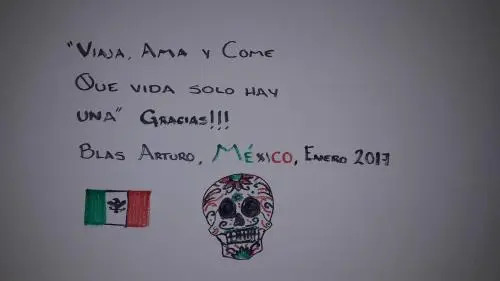 "Viaja, Ama y Come
Que vida solo hay
una" Gracias!!!
Blas Arturo, México, Enero 2017